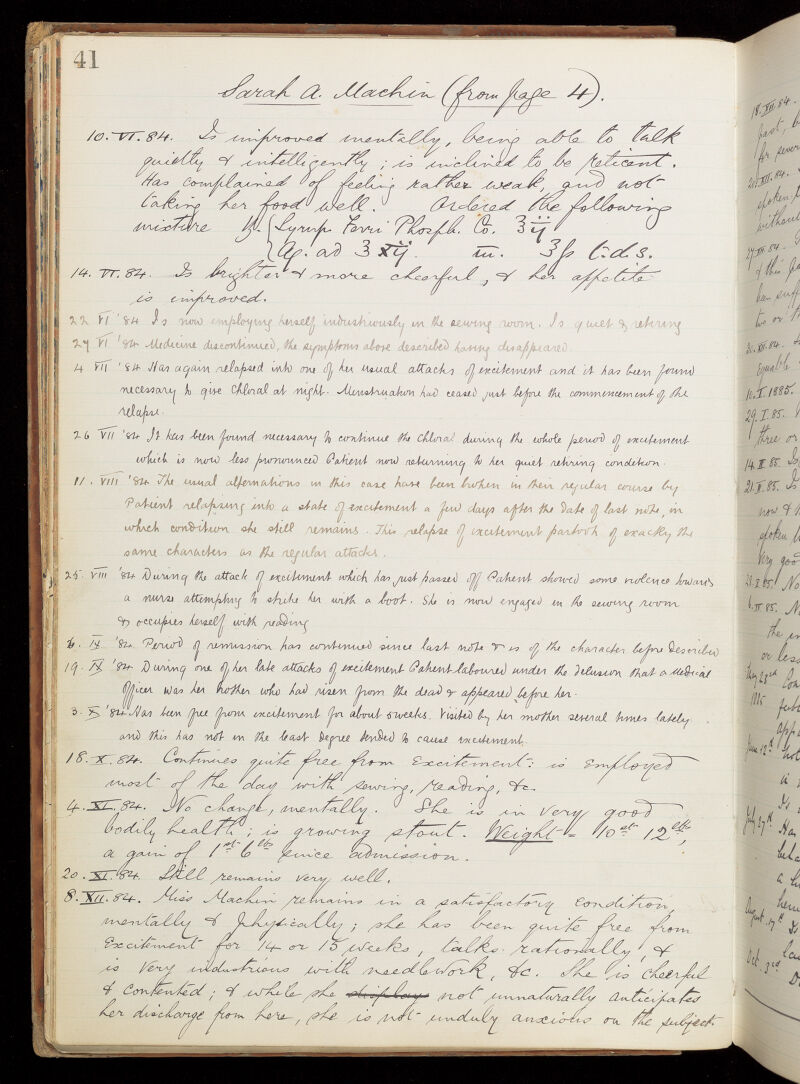 41
Sarah A. Machin (from page 4).
10.VI.84. Is improved mentally, being able to talk
quietly & intelligently; is inclined to be reticent.
Has complained of feeling rather weak, and not
taking her food well. Ordered the following
mixture Syrup Ferri Phosph. Co. ʒij
Aq. ad ʒxij. m. ℥ß t.d.s.
14.VI.84. Is brighter & more cheerful, & her appetite
is improved.
22 VI '84 Is now employing herself industriously in the sewing room. Is quiet & retiring
27 VI '84 Medicine discontinued, the symptoms above described having disappeared.
4 VII '84 Has again relapsed into one of her usual attacks of excitement and it has been found
necessary to give Chloral at night. Menstruation had ceased just before the commencement of the
relapse.
26 VII '84 It has been found necessary to continue the Chloral during the whole period of excitement
which is now less pronounced Patient now returning to her quiet retiring condition.
11. VIII '84 The usual alternations in this case have been broken in their regular course by
Patient relapsing into a state of excitement a few days after the date of last note, in
which condition she still remains. This relapse of excitement partook of exactly the
same characters as the regular attacks.
25. VIII '84 During the attack of excitement which has just passed off Patient showed some violence towards
a nurse attempting to strike her with a boot. She is now engaged in the sewing room
& occupies herself with reading
6. IX '84 Period of remission has continued since last note & is of the character before described
19. IX '84 During one of her late attacks of excitement Patient laboured under the delusion that a Medical
Officer was her brother who had risen from the dead & appeared before her.
3. X '84 Has been free from excitement for about 5 weeks. Visited by her mother several times lately
and this has not in the least degree tended to cause excitement.
18.X.84. Continues quite free from Excitement: is employed
most of the day with sewing, reading, &c.
4.XI.84. No change, mentally. She is in very good
bodily health; is growing stout. Weight = 10st 12lbs,
a gain of 1st 6lbs since admission.
20.XI.84 Still remains very well.
8.XII.84. Miss Machin remains in a satisfactory condition,
mentally & physically; she has been quite free from
Excitement for 14 or 15 weeks, talks rationally, &
is very industrious with needlework, &c. She is cheerful
& contented; & while she displays not unnaturally anticipates
her discharge from here, she is not unduly anxious on the subject.
18.XII.84.
past,
for
20.XII.84.
spoken
without
27.XII.84.
of this
been
two or
31.XII.84.
Equable
10.I.1885.
29.I.85.
three or
14.II.85. Is
21.II.85. Is
now &
spoken
Very good
No
6.III.85.
the
or less
May 28th
1885
June 12th not
in
July 27th Has
a
August 17th Is
Oct. 3rd